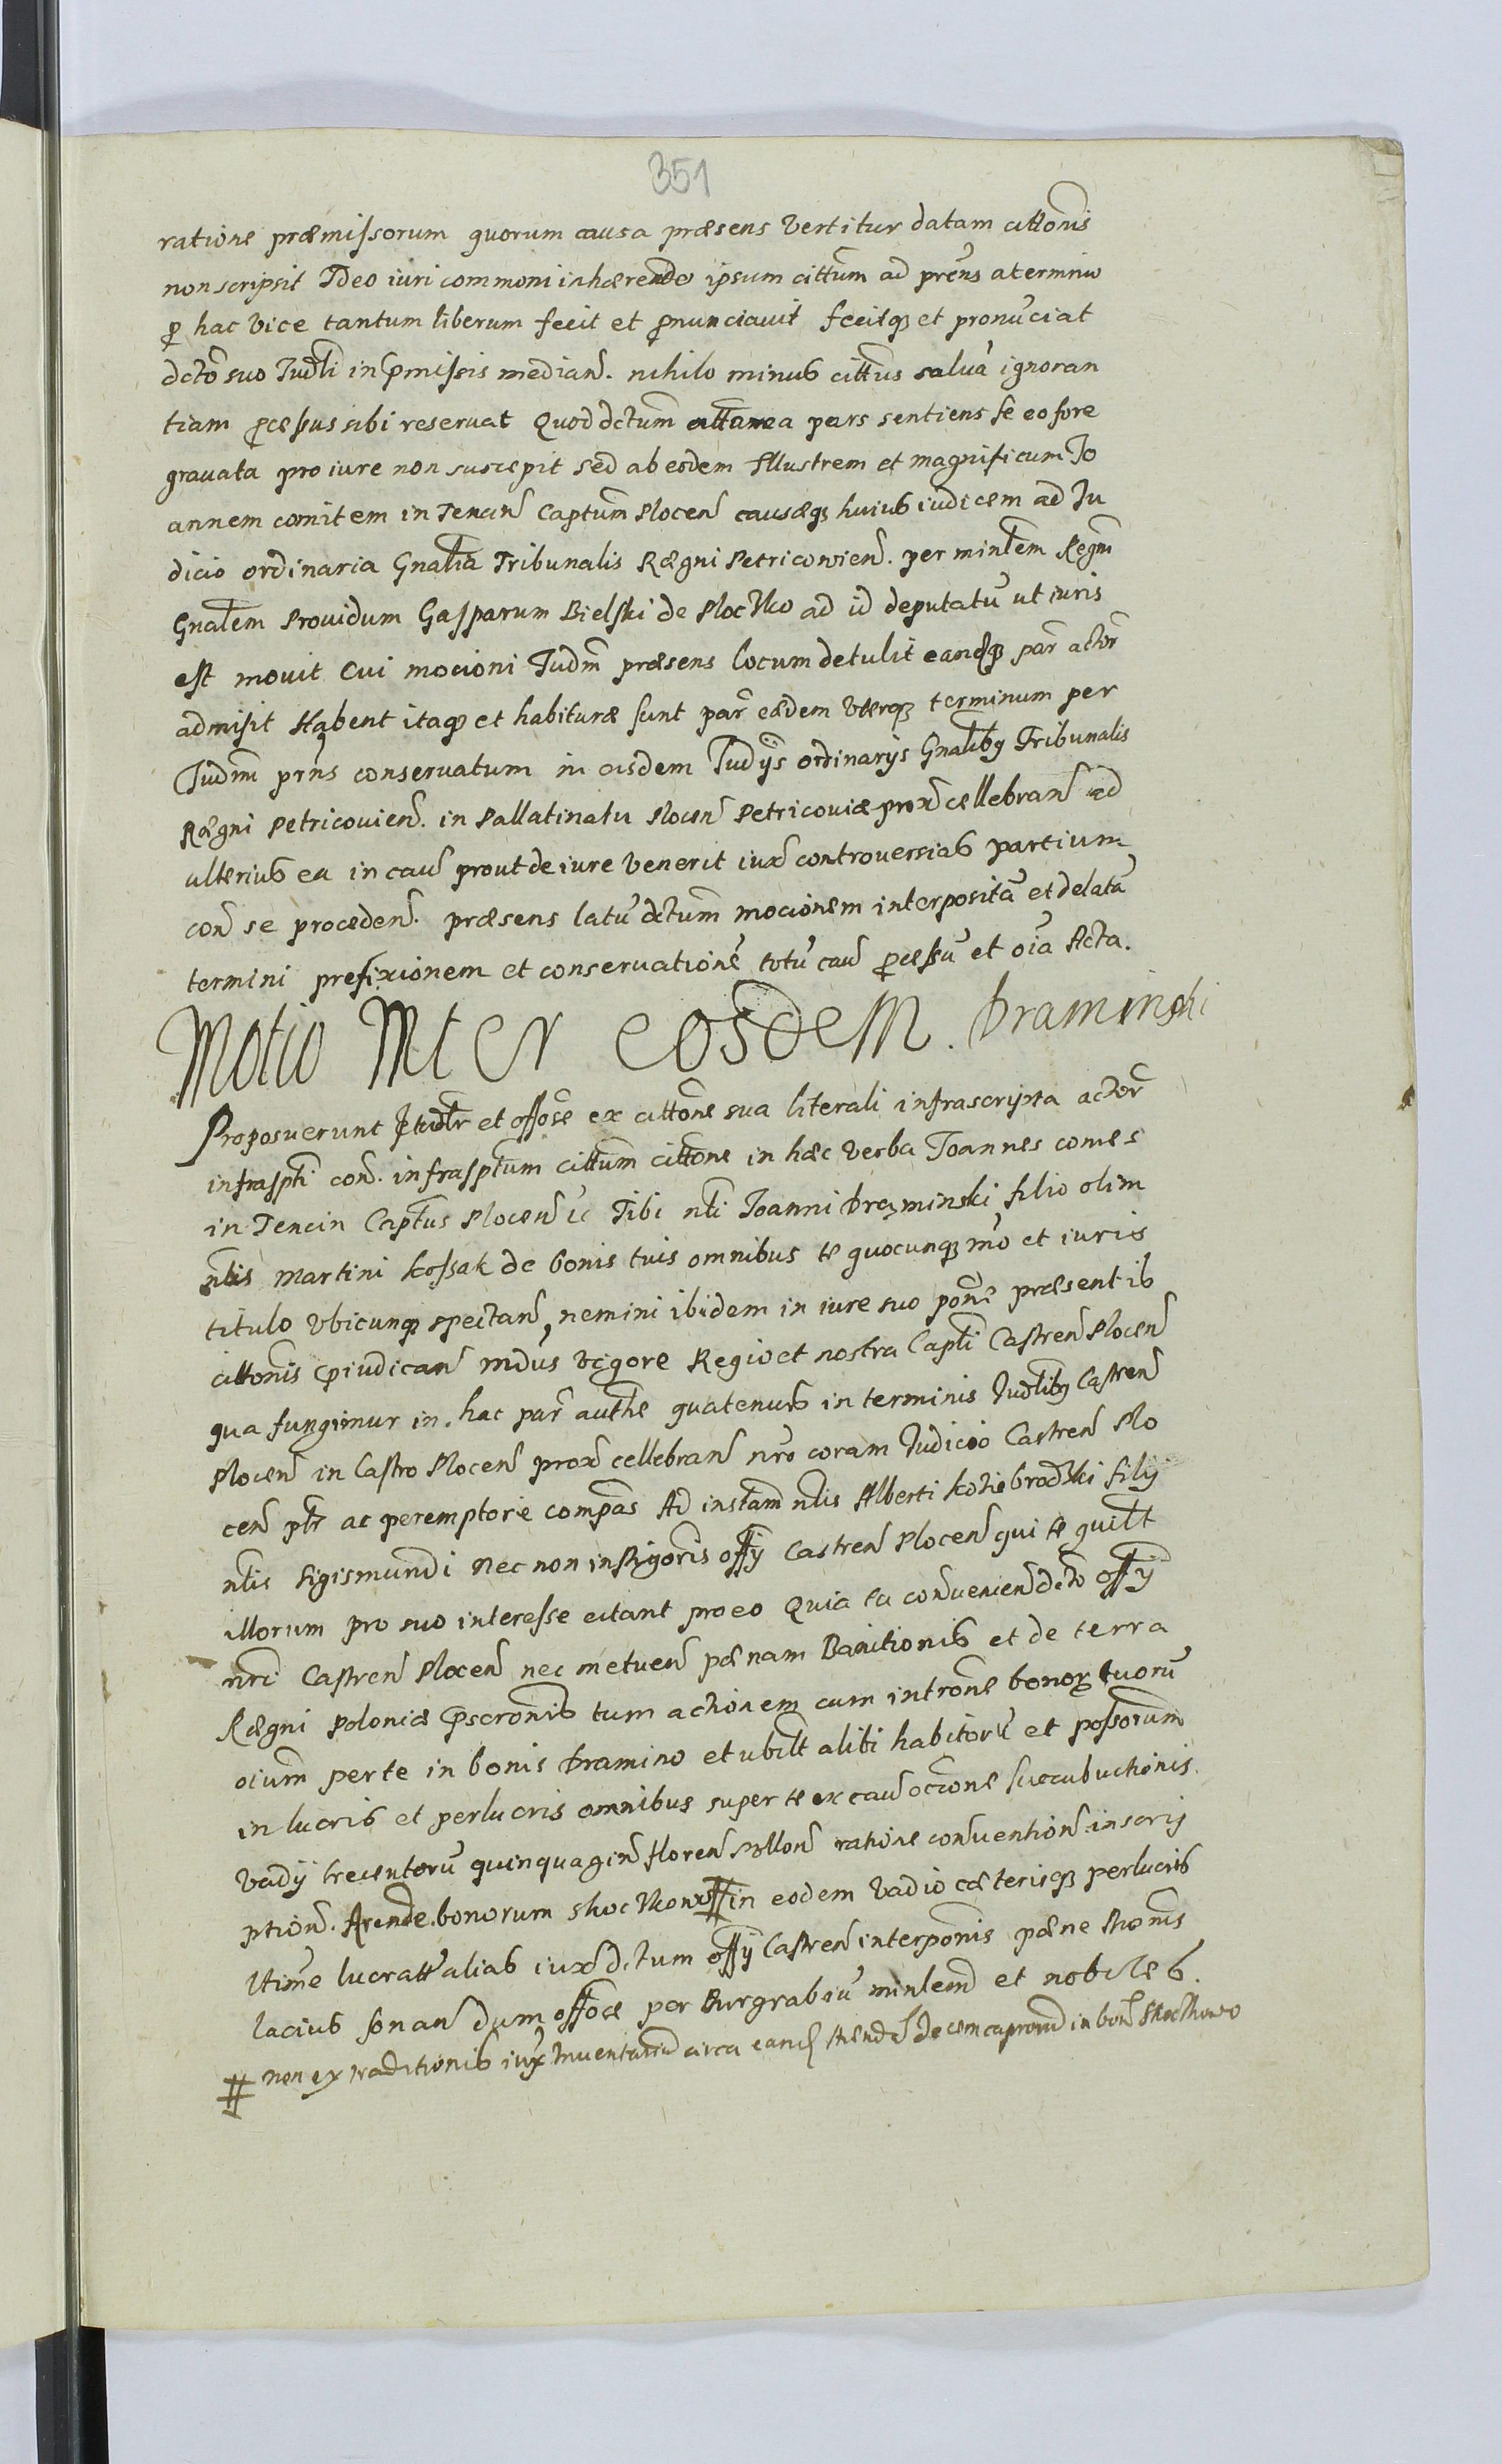 351
ratione præmissorum quorum causa præsens vertitur datam cittonis
non scripsit Ideo iuri commoni inhærendo ipsum cittum ad prens a termino
p hac vice tantum liberum fecit et pnunciavit fecitq et pronuciat
dcto suo Judli in pmissis median. nihilo minus cittus salva ignoran
tiam pcessus sibi reservat Quod dctum actorea pars sentiens se eo fore
gravata pro iure non suscepit sed ab eodem Illustrem et magnificum Jo
annem comitem in Tencin Captum Plocen causæq huius iudicem ad Ju
dicio ordinaria Gnalia Tribunalis Rægni Petricovien. per minlem Regni
Gnalem Providum Gasparum Bielski de Plocsko ad id deputatu ut iuris
est movit Cui mocioni Judm præsens locum detulit eandq par actor
admisit Habent itaq et habituræ sunt par eædem uterq terminum per
Judm prns conservatum in eisdem Judys ordinarys Gnalibq Tribunalis
Rægni Petricovien. in Pallatinatu Plocen Petricoviæ prox cellebran ad
ulterius ea in cau prout de iure venerit iux controversias partium
con se proceden. præsens latu dctum mocionem interposita et delata
termini prefixionem et conservatione totu cau pcessu et oia Acta.
Motio Inter eosdem. Draminski
Proposuerunt Judlr et offose ex cittone sua literali infrascripta actor
infraspti con. infrasptum cittum cittone in hæc verba Joannes comes
in Tencin Captus Plocen ec Tibi nli Joanni Draminski filio olim
nlis Martini Kossak de bonis tuis omnibus te quocunq mo et iuris
titulo ubicunq spectan, nemini ibidem in iure suo pone præsentib
cittonis piudican mdus vigore Regio et nostra Capli Castren Plocen
qua fungimur in hac par authe quatenus in terminis Judlibq Castren
Plocen in Castro Plocen prox cellebran nro coram Judicio Castren Plo
cen plr ac peremptorie compas Ad instam nlis Alberti Koziebrodski fily
nlis Sigismundi nec non instigoris offy Castren Plocen qui te quilt
illorum pro suo interesse citant pro eo Quia tu convenien dcto offy
nri Castren Plocen nec metuen pænam Banitionis et de terra
Rægni Poloniæ pscronis tum actionem cum introne bonor tuoru
oium per te in bonis Dramino et ubilt alibi habitoru et possorum
in lucris et perlucris omnibus super te ex cau ocione succubuctionis
vadÿ trecentoru quinquagin floren Pollon ratione convention inscri
ption. Arendæ bonorum Skocskowo # in eodem vadio cæterisq perlucris
ltime lucratt alias iux dctum offy Castren interponis pæne shonis
lacius sonan dum offose per Burgrabiu minlem et nobiles
# non ex traditionis iux Inventariu circa eand Arendæ decem caprorum in bon Skockowo